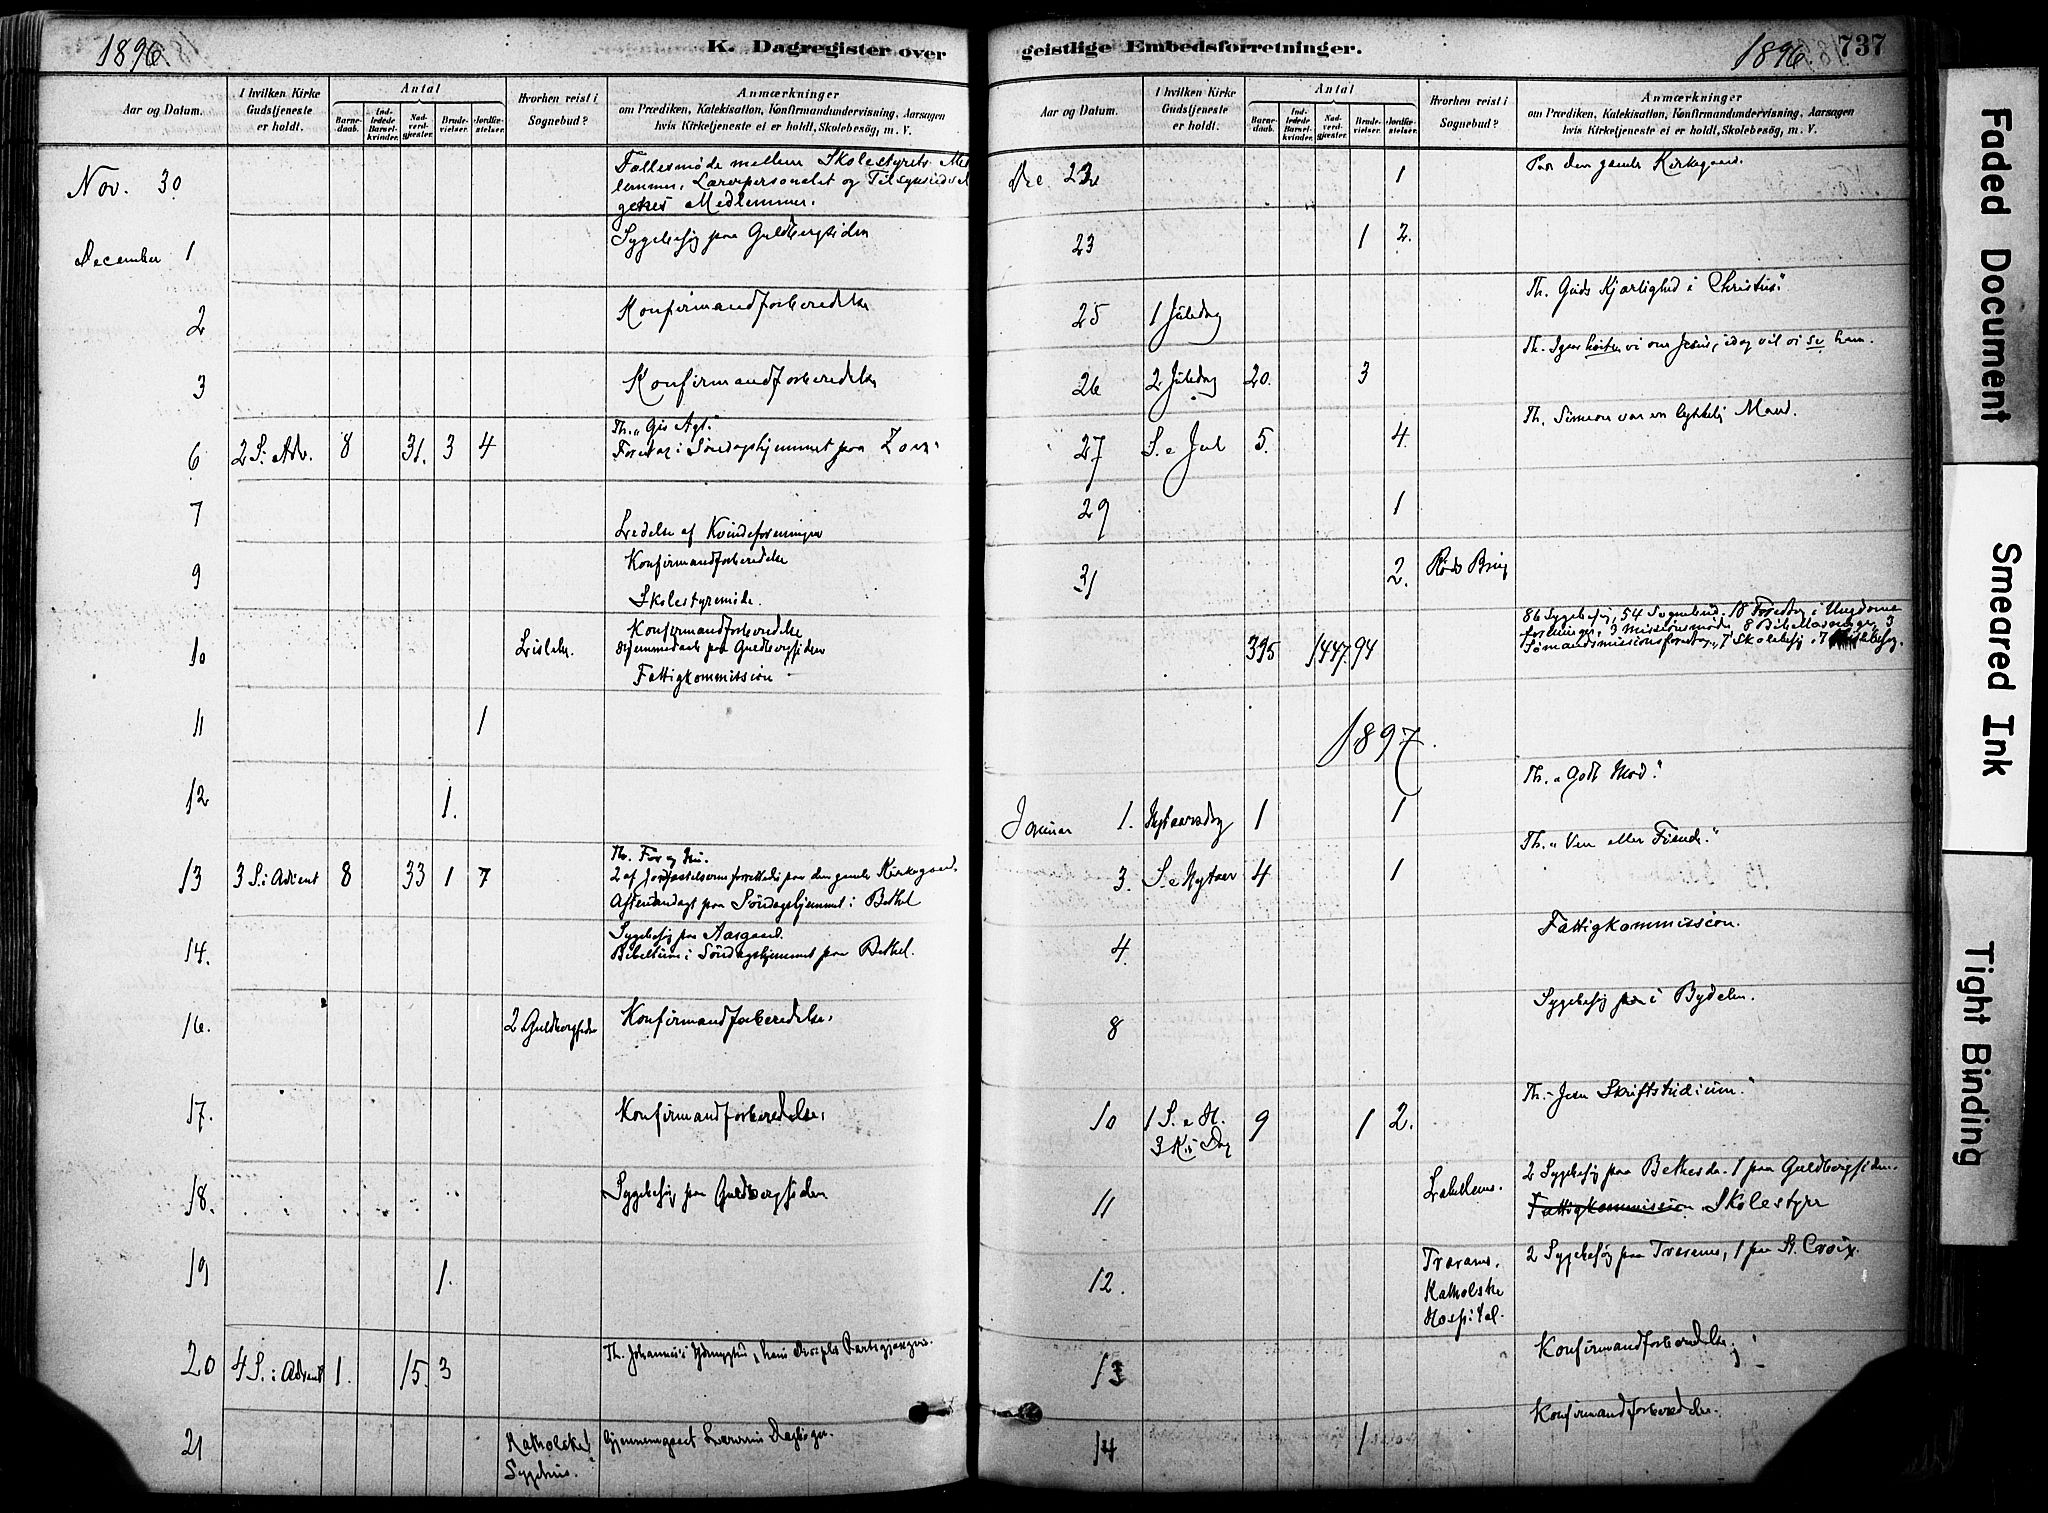 1896.
K. Dagregister over
Aar og Datum.
I hvilken Kirke Gudstjeneste er holdt.
Antal
Barnedaab.
Indledede Barselkvinder.
Nadverdgjester.
Brudevielser.
Jordfæstelser.
Hvorhen reist i Sognebud?
Anmærkninger
om Prædiken, Katekisation, Konfirmandundervisning, Aarsagen
hvis Kirketjeneste ei er holdt, Skolebesög, m. V.
Nov. 30. Fællesmøde mellem Skolestyrets Med
lemmer, Lærerpersonalet og Tilsynsudval
genes Medlemmer.
December 1 Sygebesøg paa Guldbergsiden
2 Konfirmandforberedelse
3 Konfirmandforberedelse
6 2 S. i Adv. 8 31. 3 4 Th.
Foredrag i Søndagshjemmet paa
7 Ledelse af Kvindeforeningen
9 Konfirmandforberedelse
Skolestyremøde.
10 Konfirmandforberedelse
paa Guldbergsiden
Fattigkommission
11 1
12 1.
13 3 S. i Advent 8 33 1 7 Th. Før og Nu.
2 af Jordfæstelserne forrettedes paa den gamle Kirkegaard.
Aftenandagt paa Søndagshjemmet i Bethel
14. Sygebesøg paa Aasgaard.
Bibeltime i Søndagshjemmet paa Bethel.
16. 2 Guldbergsiden Konfirmandforberedelse.
17. Konfirmandforberedelse.
18. Sygebesøg paa Guldbergsiden
19 1.
20 4 S. i Advent 1. 15. 3 Th. Johannes's Ydmyghed, hans Disciples
21 Katholske
Sygehus. Gjennemgaaet Lærernes Dagbøger.
geistlige Embedsforretninger.
1896. 737
Aar og Datum.
I hvilken Kirke Gudstjeneste er holdt.
Antal
Barnedaab.
Indledede Barselkvinder.
Nadverdgjester.
Brudevielser.
Jordfæstelser.
Hvorhen reist i Sognebud?
Anmærkninger
om Prædiken, Katekisation, Konfirmandundervisning, Aarsagen
hvis Kirketjeneste ei er holdt, Skolebesög, m. V.
Dec 1 Paa den gamle Kirkegaard.
23 1 2.
25 1 Juledag Th. Guds Kjærlighed i Christus."
26 2 Juledag 20. 3 Th. Igaar hørte vi om Jesus, idag vil vi se ham.
27 S. e Jul 5. 4. Th. Simeon var en lykkelig Mand.
29 1
31 2.
86 Sygebesøg, 54 Sognebud. 18 Foredrag i Ungdoms
foreninger, 3 Missionsmøder 8 Bibellæsninger, 3
395 1447. 94 Sømandsmissionsforedrag, 7 Skolebesøg, 7
1897.
Januar 1. Nytaarsdag 1 1 Th. "Godt Mod."
3. S. e Nytaar 4 1 Th. "Ven eller Fiende."
4. Fattigkommission.
8 Sygebesøg i Bydelen.
10 1 S. e H.
3 K. Dag 9 1 2. Th. "Jesu Skriftstudium."
11 2 Sygebesøg paa Bethesda. 1 paa Guldbergsiden.
Fattigkommission Skolestyre
12. Traranes,
Katholske
Hospital. 2 Sygebesøg paa Traranes, 1 paa St. Croix.
13 Konfirmandforberedelse
14 1 Konfirmandforberedelse.
Faded Document
Smeared Ink
Tight Binding